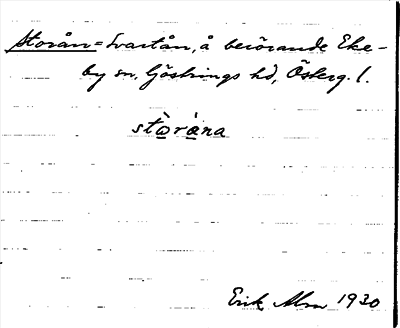 Storån = Svartån, å berörande Eke-
by sn, Göstrings hd, Österg. l.
stὼrà̱na
Erik Alm 1930